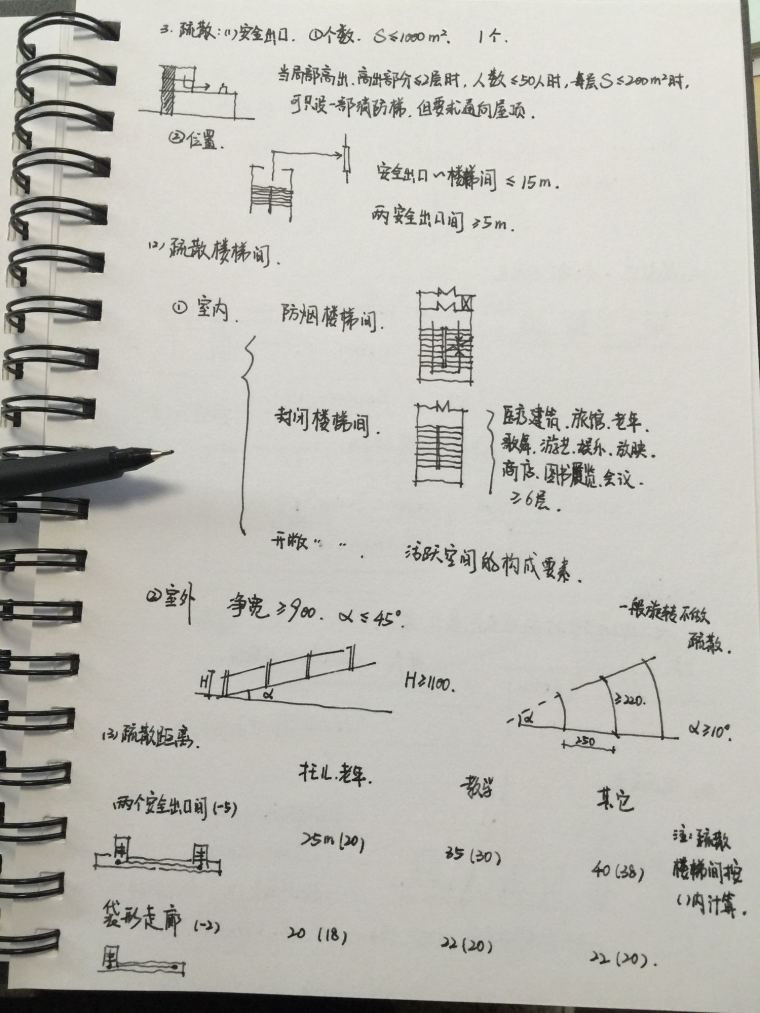 3. 疏散：(1)安全出口. ①个数. S≤1000m². 1个.
当局部高出、高出部分≤2层时，人数≤50人时，每层S≤200m²时，
可只设一部消防梯，但要求通向屋顶.
②位置.
安全出口~楼梯间≤15m.
两安全出口间≥5m.
(2)疏散楼梯间.
①室内. 防烟楼梯间.
封闭楼梯间.
医疗建筑、旅馆、老年、
歌舞、游艺、娱乐、放映.
商店、图书展览、会议.
≥6层.
开敞〃 〃. 活跃空间的构成要素.
②室外 净宽≥900. α≤45°.
一般旋转不做
疏散.
H α H≥1100.
α ≥220. 250 α≥10°.
(3)疏散距离.
托儿.老年. 教学 其它
两个安全出口间(-5) 25m(20) 35(30) 40(38)
注：疏散
楼梯间按
( )内计算.
袋形走廊(-2) 20(18) 22(20) 22(20).